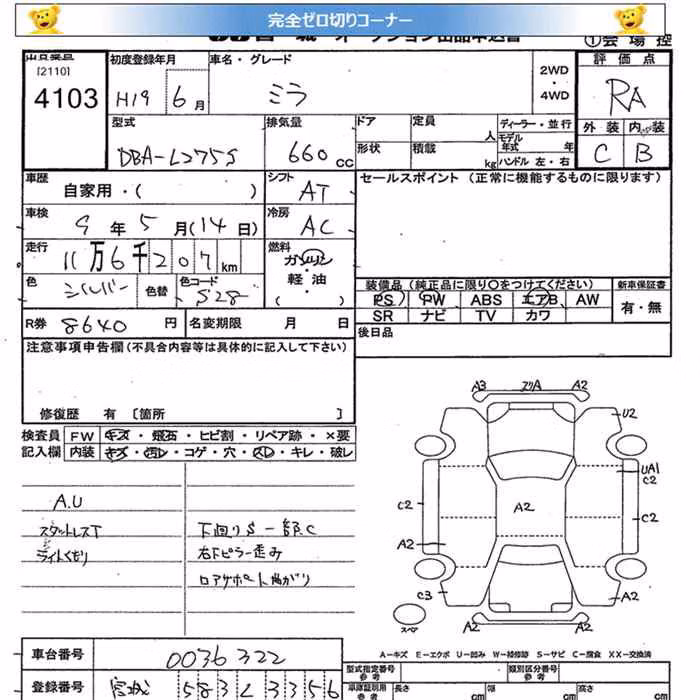 完全ゼロ切りコーナー
①会場控
[2110]
4103
初度登録年月
H19 6月
車名・グレード
ミラ
2WD
・
4WD
評価点
RA
外装 内装
C B
型式
DBA-L275S
排気量
660 CC
ドア
定員
人
形状
積載
kg
ディーラー・並行
モデル
年式 年
ハンドル 左・右
車歴
自家用・( )
シフト
AT
セールスポイント (正常に機能するものに限ります)
車検
9年 5月(14日)
冷房
AC
走行
11万6千207km
燃料
ガソリン
・
軽油
( )
色
シルバー
色替
色コード
S28
装備品 (純正品に限り○をつけてください)
PS PW ABS エアB AW
SR ナビ TV カワ
新車保証書
有・無
R券 8640 円
名変期限 月 日
後日品
注意事項申告欄 (不具合内容等は具体的に記入して下さい)
修復歴 有 [箇所 ]
検査員
記入欄
FW キズ・飛石・ヒビ割・リペア跡・×要
内装 キズ・汚レ・コゲ・穴・スレ・キレ・破レ
A.U
スタットレスT
ライトくもり
下回りS 一部C
右下ピラー歪み
ロアサポート曲がり
A3 A2
U2
UA1
C2
C2
C2
A2
A2
C3
A2
A2 A2
スペア
A-キズ E-エクボ U-凹み W-補修跡 S-サビ C-腐食 XX-交換済
車台番号
0036322
登録番号
宮城 583 3356
型式指定番号
参考
類別区分番号
参考
車庫証明用
参考
長さ
cm
幅
cm
高さ
cm